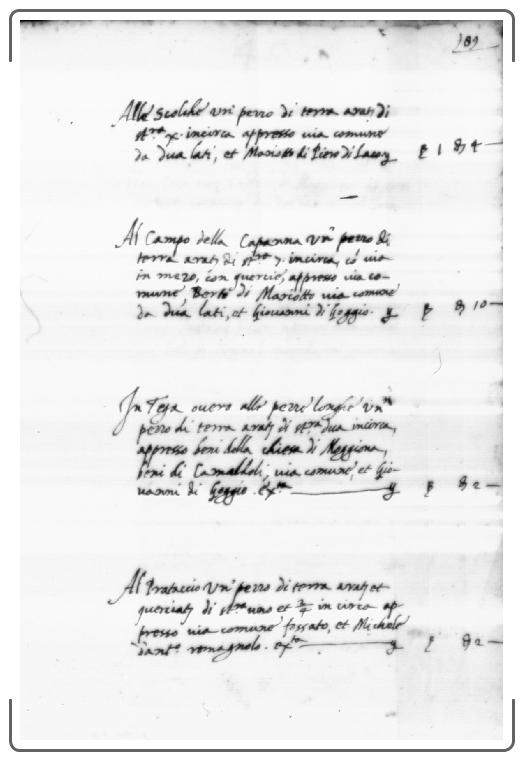 181
Alle Scolche un pezzo di terra arat. di
st.ra x. incirca appresso via comune
da dua lati, et Mariotto di Piero di 1 4
Al Campo della Capanna un pezzo di
terra arat. di st.re 7. incirca, cõ via
in mezo, con quercie, appresso via co-
mune Berto di Mariotto via comune
da dua lati, et Giovanni di Goggio. 10
In Teja overo alle pezze longhe un
pezzo di terra arat. di st.ra dua incirca,
appresso beni della chiesa di Moggiona,
beni di Camaldoli, via comune, et Gio-
vanni di Goggio. 2
Al Prataccio un pezzo di terra arat. et
querciat. di st.ra uno et incirca ap
presso via comune fossato, et Michele
dant.o romagnolo. 2